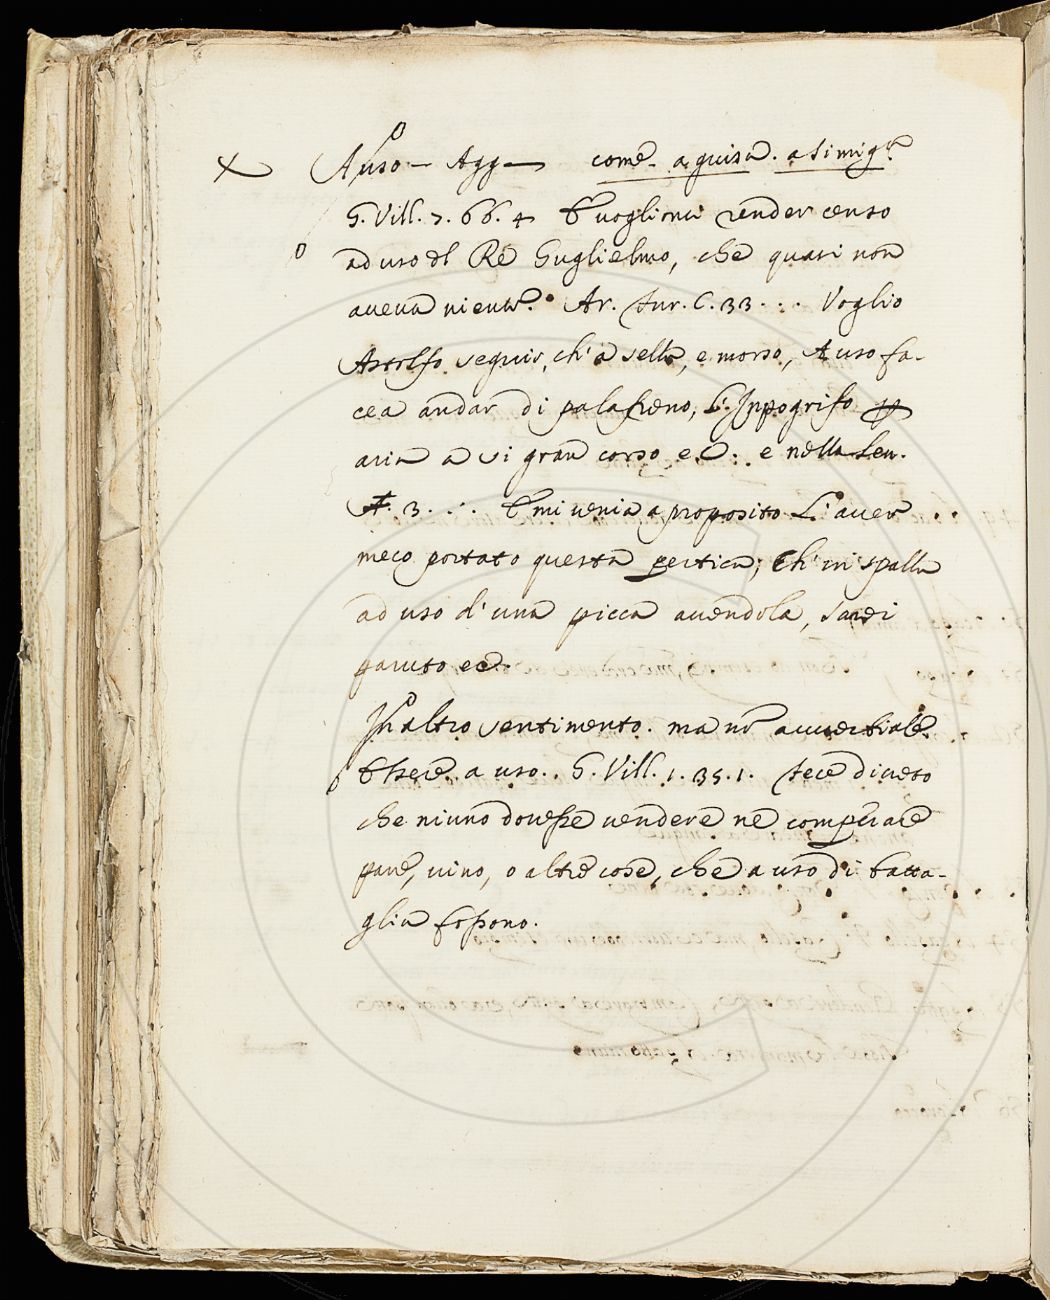 A uso — Agg — come. a guisa. a simigl.
G. Vill. 7. 66. 4 E voglionci render censo
ad uso dl Re Guglielmo, che quasi non
aveva niente. Ar. Fur. C. 33 . . . Voglio
Astolfo seguir, ch'a sella, e morso, A uso fa-
cea andar di palafreno, L'Ippogrifo
aria a sì gran corso ec. e nella Len.
A. 3. . . . E mi venia a proposito L'aver
meco portato questa pertica; Ch' in spalla
ad uso d'una picca avendola, sarei
paruto ec.
In altro sentimento. ma nō avverbiale.
Essere a uso. G. Vill. 1. 35. 1. fece diveto
che niuno dovesse vendere nè comperare
pane, vino, o altre cose, che a uso di batta-
glia fossono.